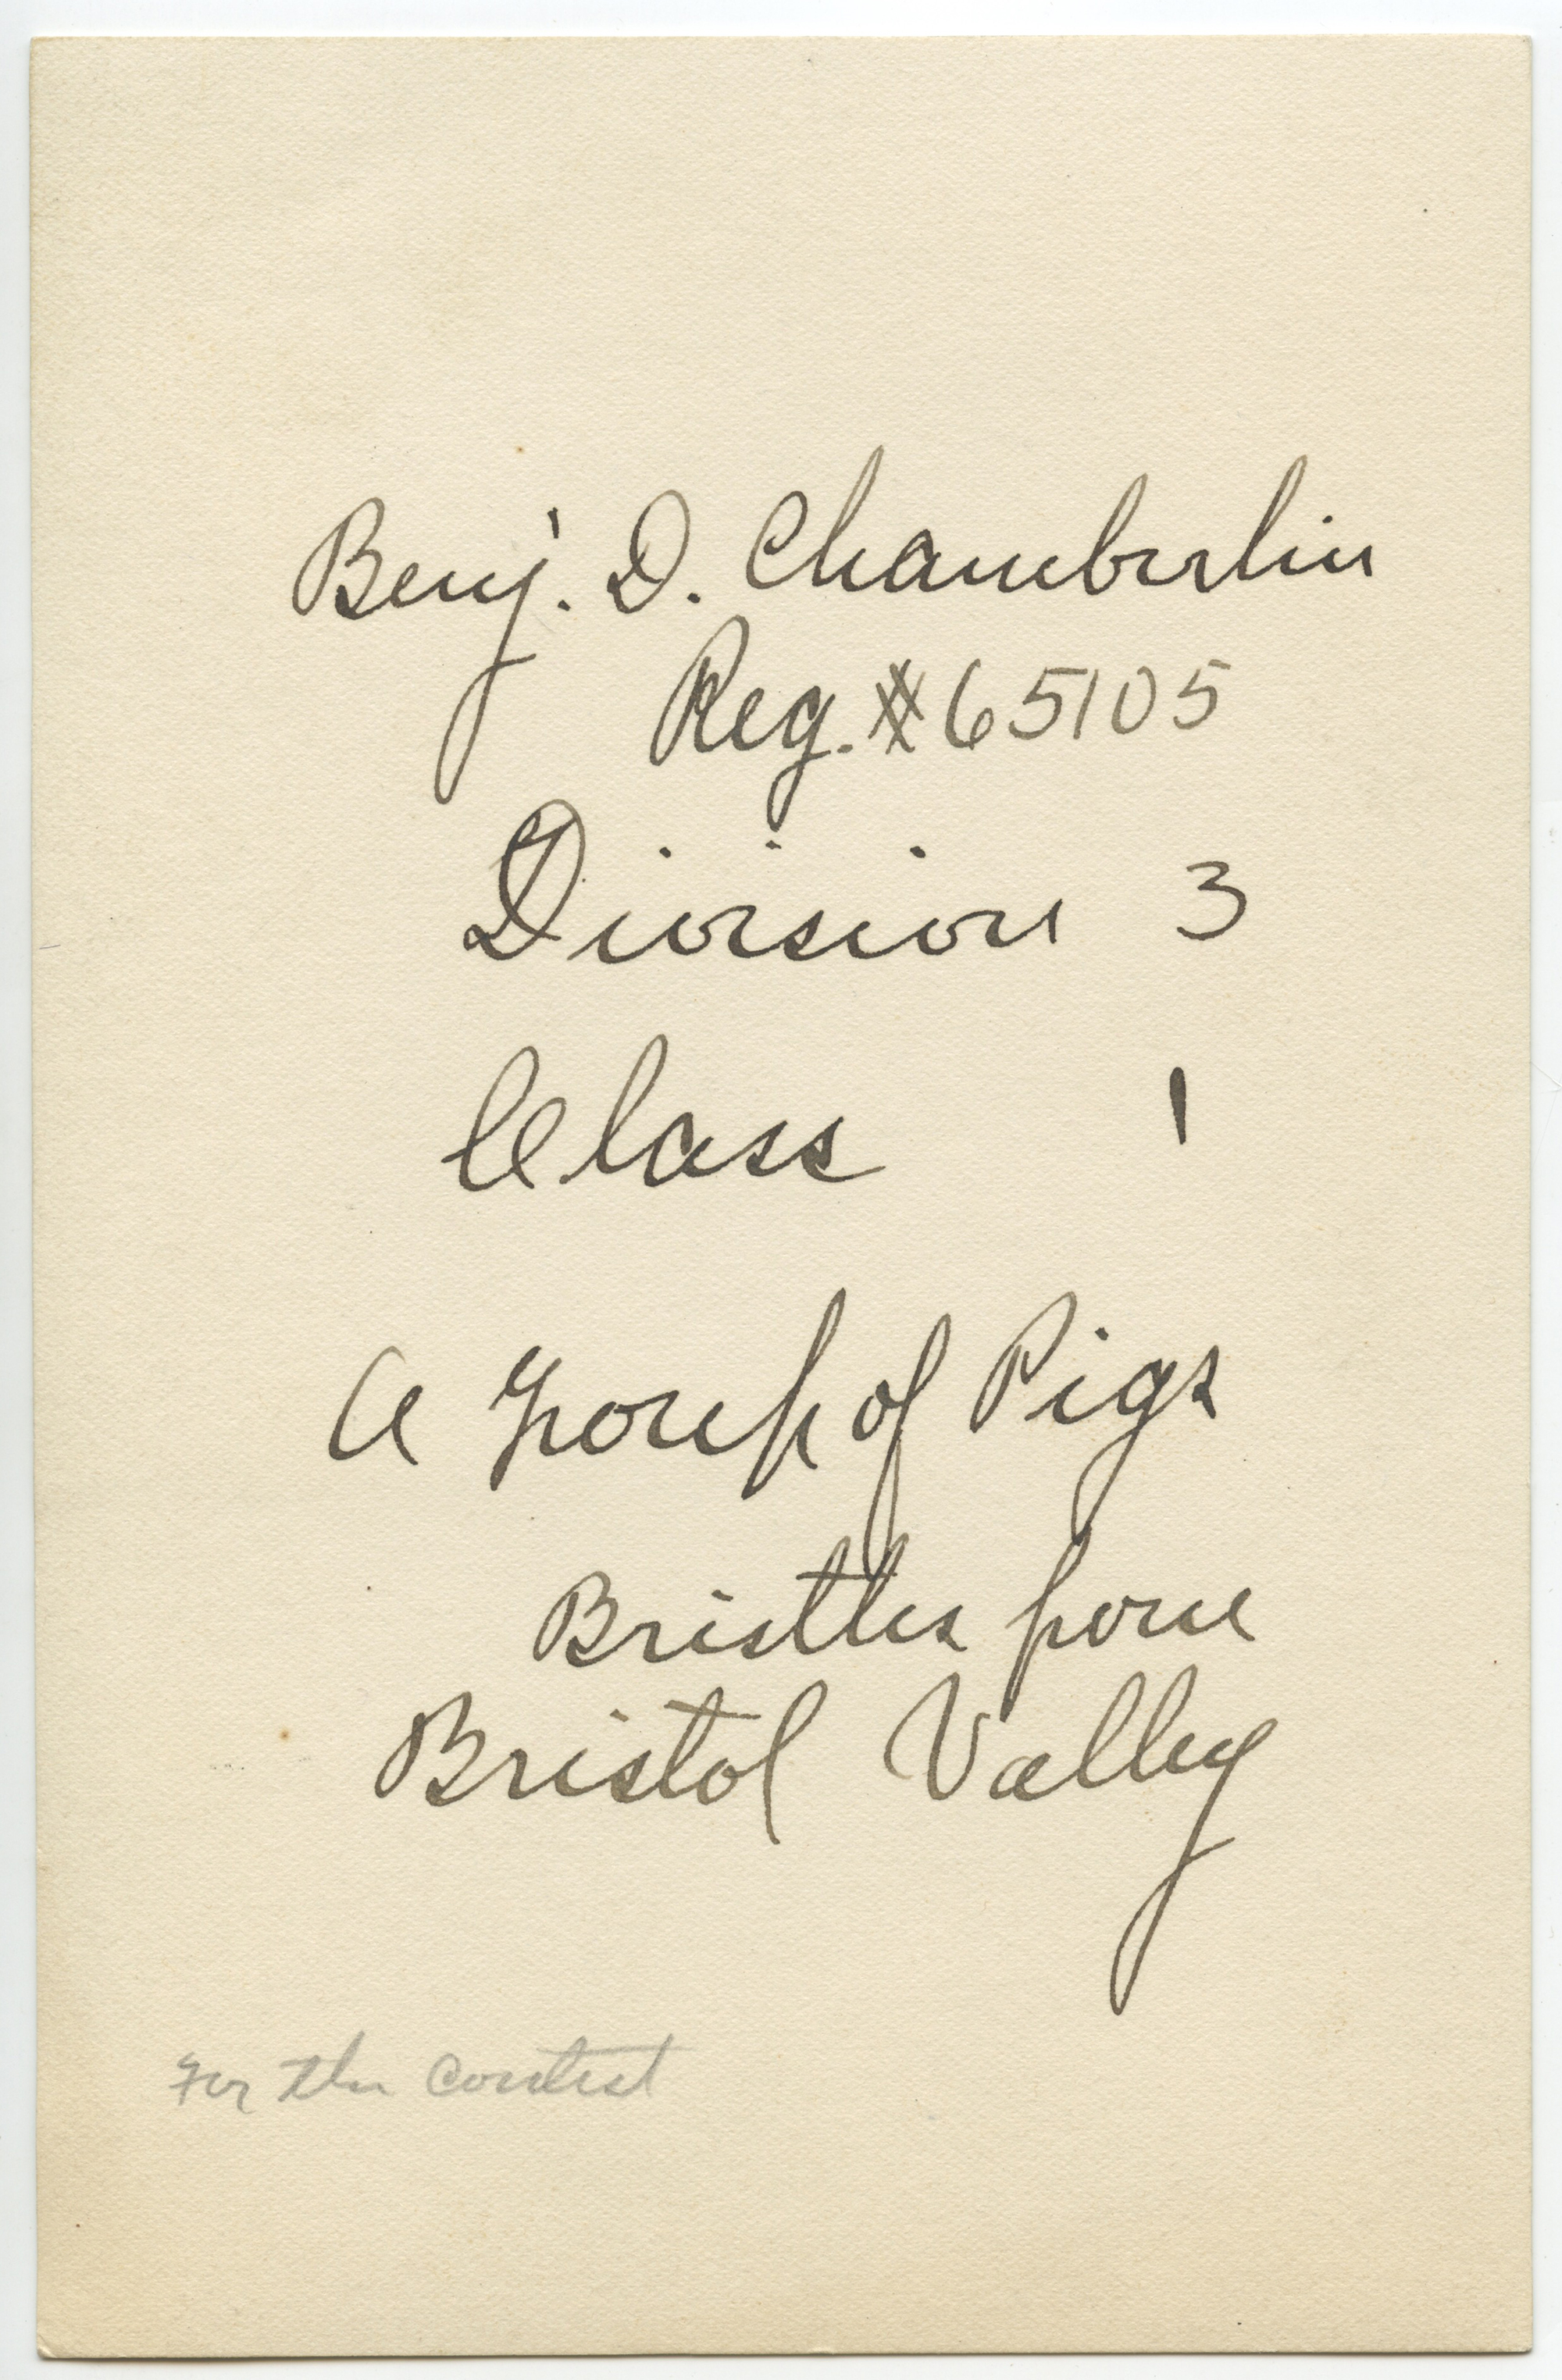 Benj. D. Chamberlin
Reg. #65105
Division 3
Class 1
A Group of Pigs
Bristles from
Bristol Valley
For the contest